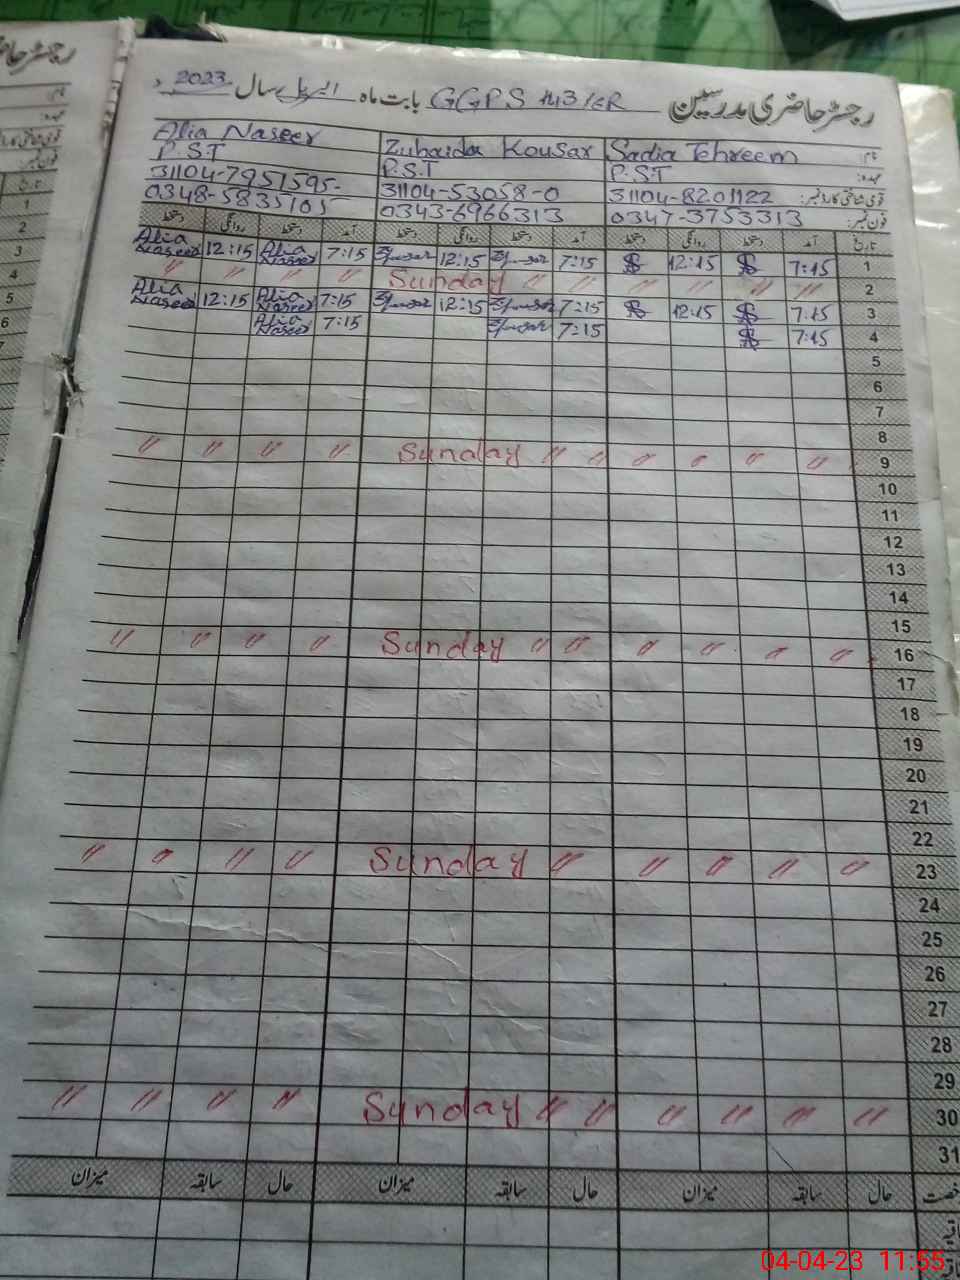 رجسٹر حاضری مدرسین GGPS 143/6R بابت ماہ اپریل سال 2023ء
نام: Sadia Tehreem Zubaida Kousar Alia Naseer
عہدہ: P.S.T P.S.T P.S.T
قومی شناختی کارڈ نمبر: 31104-8201122 31104-53058-0 31104-7951595-
فون نمبر: 0347-3753313 0343-6966313 0348-5835105
تاریخ آمد دستخط روانگی دستخط آمد دستخط روانگی دستخط آمد دستخط روانگی دستخط
1 7:15 12:15 7:15 12:15 7:15 Alia Naseer 12:15 Alia Naseer
2 〃 〃 〃 〃 〃 〃 Sunday 〃 〃 〃 〃
3 7:15 12:15 7:15 12:15 7:15 Alia Naseer 12:15 Alia Naseer
4 7:15 7:15 7:15 Alia Naseer
5
6
7
8
9 〃 〃 〃 〃 〃 〃 Sunday 〃 〃 〃 〃
10
11
12
13
14
15
16 〃 〃 〃 〃 〃 〃 Sunday 〃 〃 〃 〃
17
18
19
20
21
22
23 〃 〃 〃 〃 〃 Sunday 〃 〃 〃 〃
24
25
26
27
28
29
30 〃 〃 〃 〃 〃 〃 Sunday 〃 〃 〃 〃
31
حال سابقہ میزان حال سابقہ میزان حال سابقہ میزان
04-04-23 11:55